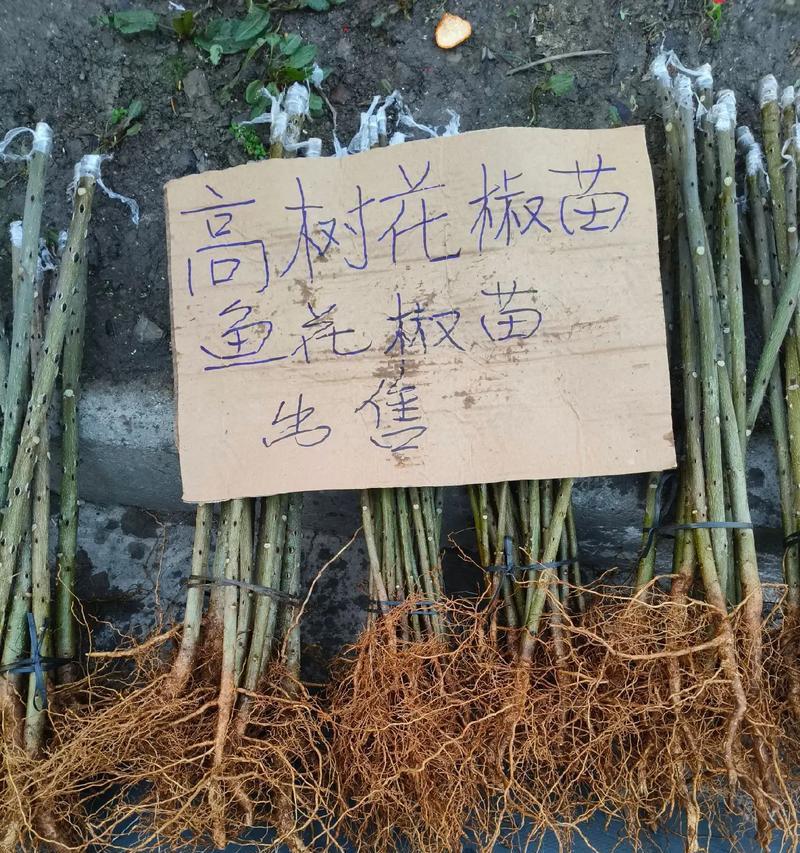 高树花椒苗
鱼花椒苗
出售